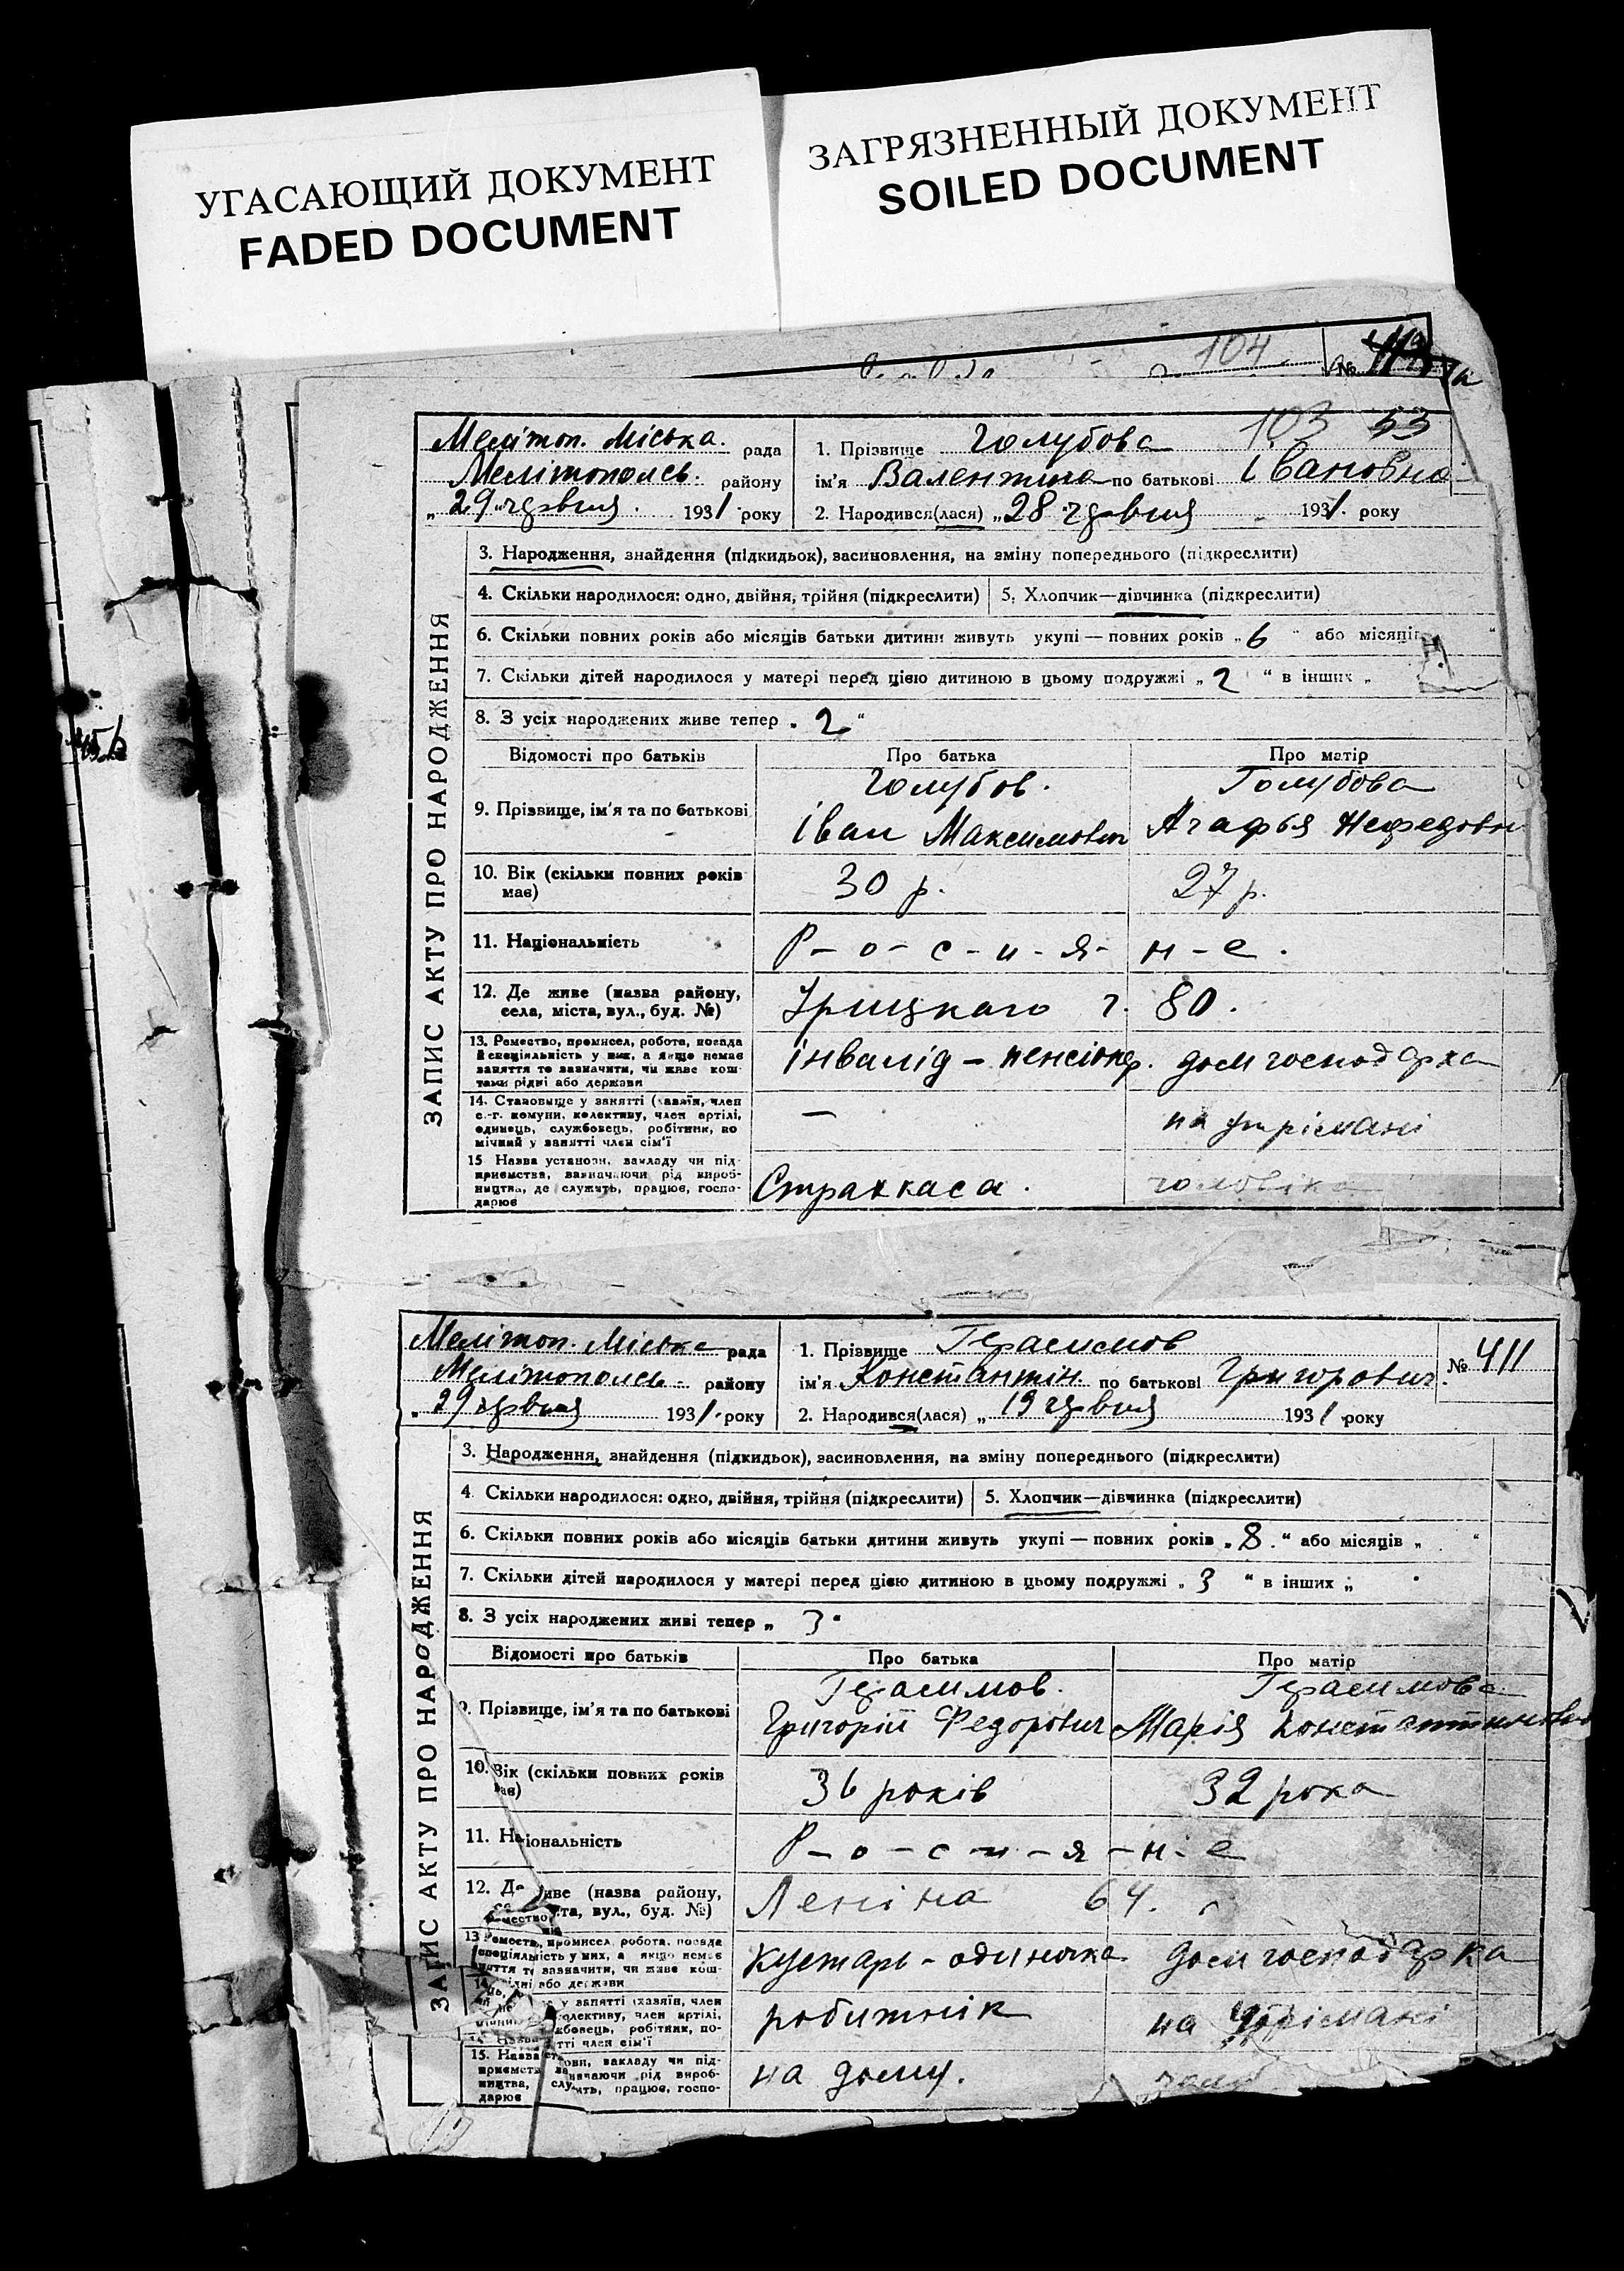 УГАСАЮЩИЙ ДОКУМЕНТ
FADED DOCUMENT
ЗАГРЯЗНЕННЫЙ ДОКУМЕНТ
SOILED DOCUMENT
104 №
103 53
Мелітоп. Міська. рада
Мелітополсь. району
„29 червня 1931 року
1. Прізвище Голубова
ім'я Валентина по батькові Івановна
2. Народився(лася) „28 червня 1931. року
ЗАПИС АКТУ ПРО НАРОДЖЕННЯ
3. Народження, знайдення (підкидьок), засиновлення, на зміну попереднього (підкреслити)
4. Скільки народилося: одно, двійня, трійня (підкреслити) 5. Хлопчик—дівчинка (підкреслити)
6. Скільки повних років або місяців батьки дитини живуть укупі — повних років „6“ або місяців
7. Скільки дітей народилося у матері перед цією дитиною в цьому подружжі „2“ в інших „
8. З усіх народжених живе тепер „2“
Відомості про батьків Про батька Про матір
9. Прізвище, ім'я та по батькові Голубов. Іван Максимович Голубова Агафья Нефедовн
10. Вік (скільки повних років має) 30 р. 27 р.
11. Національність Р-о-с-и-я-н-е.
12. Де живе (назва району, села, міста, вул., буд. №) Урицкаго 80.
13. Ремество, промисел, робота, посада й спеціяльність у них, а якщо немає заняття то зазначити, чи живе коштами рідні або держави інвалід – пенсіонер. дом господарка
14. Становище у занятті (хазяїн, член с.-г. комуни, колективу, член артілі, одинець, службовець, робітник, помічний у занятті член сім'ї — на утрімані
15 Назва установи, закладу чи підприємства, зазначаючи рід виробництва, де служить, працює, господарює Страхкаса. головіка
Мелітоп. Міська рада
Мелітопольсь. району
„29 червня 1931. року
1. Прізвище Герасимов № 411
ім'я Константін. по батькові Григорович.
2. Народився(лася) „19 червня 1931 року
ЗАПИС АКТУ ПРО НАРОДЖЕННЯ
3. Народження, знайдення (підкидьок), засиновлення, на зміну попереднього (підкреслити)
4. Скільки народилося: одно, двійня, трійня (підкреслити) 5. Хлопчик—дівчинка (підкреслити)
6. Скільки повних років або місяців батьки дитини живуть укупі — повних років „8.“ або місяців „ “
7. Скільки дітей народилося у матері перед цією дитиною в цьому подружжі „3“ в інших „
8. З усіх народжених живі тепер „3“
Відомості про батьків Про батька Про матір
9. Прізвище, ім'я та по батькові Герасимов. Григорій Федорович Герасимова Марія Константиновна
10. Вік (скільки повних років має) 36 років 32 рока
11. Національність Р-о-с-и-я-н-е
12. Де живе (назва району, вул., буд. №) Леніна 64.
13 Ремество, промисел, робота, посада спеціяльність у них, а якщо немає заняття то зазначити, чи живе коштами рідні або держави кустарь-одиночка дом господарка
у занятті (хазяїн, член колективу, член артілі, службовець, робітник, по- занятті член сім'ї робитнік на утрімані
15. Назва установи, закладу чи підприємства, зазначаючи рід виробництва, служить, працює, господарює на дому.